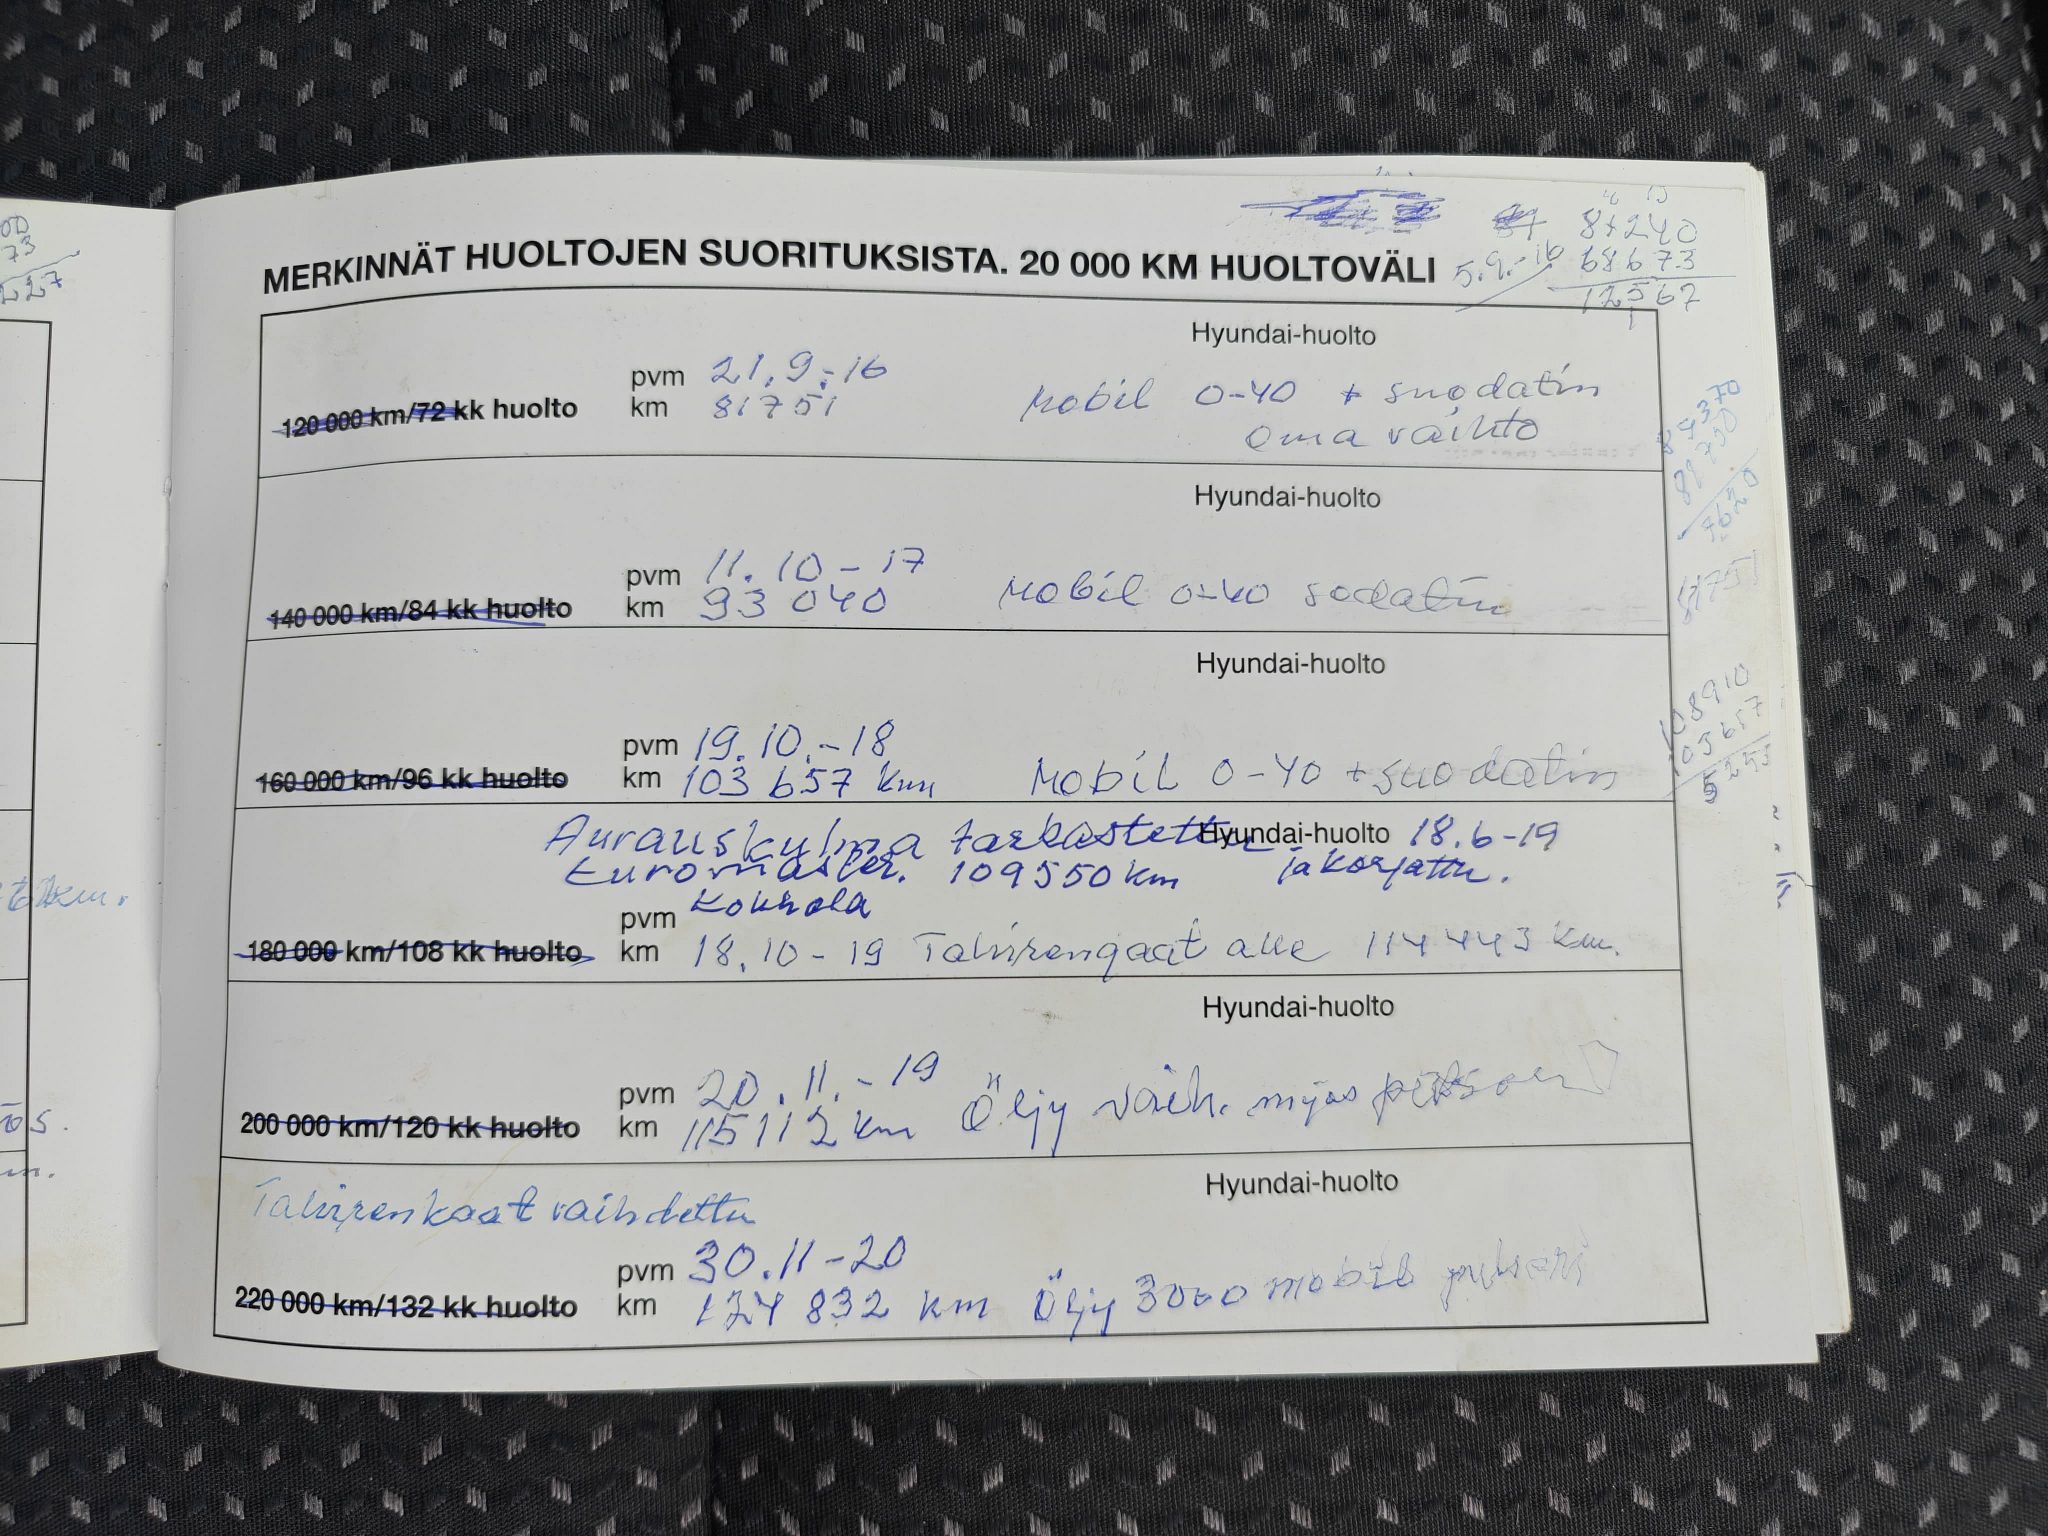 81240
68673
12567
5.9.-16
MERKINNÄT HUOLTOJEN SUORITUKSISTA. 20 000 KM HUOLTOVÄLI
Hyundai-huolto
120 000 km/72 kk huolto
pvm 21.9.-16
km 81751
Mobil 0-40 + suodatin
oma vaihto
Hyundai-huolto
140 000 km/84 kk huolto
pvm 11.10-17
km 93 040
Mobil 0-40 sodatin
Hyundai-huolto
160 000 km/96 kk huolto
pvm 19.10.-18
km 103 657 km
Mobil 0-40 + suodatin
Aurauskulma tarkastettu Hyundai-huolto 18.6-19
Euromaster. 109550 km ja korjattu.
Kokkola
180 000 km/108 kk huolto
pvm
km 18.10-19 Talvirengaat alle 114443 km.
Hyundai-huolto
200 000 km/120 kk huolto
pvm 20.11.-19
km 115112 km
Öljy vaih. myös
Hyundai-huolto
Talvirenkaat vaihdettu
220 000 km/132 kk huolto
pvm 30.11-20
km 124 832 km Öljy 3000 mobil
89370
81750
7620
81751
108910
103657